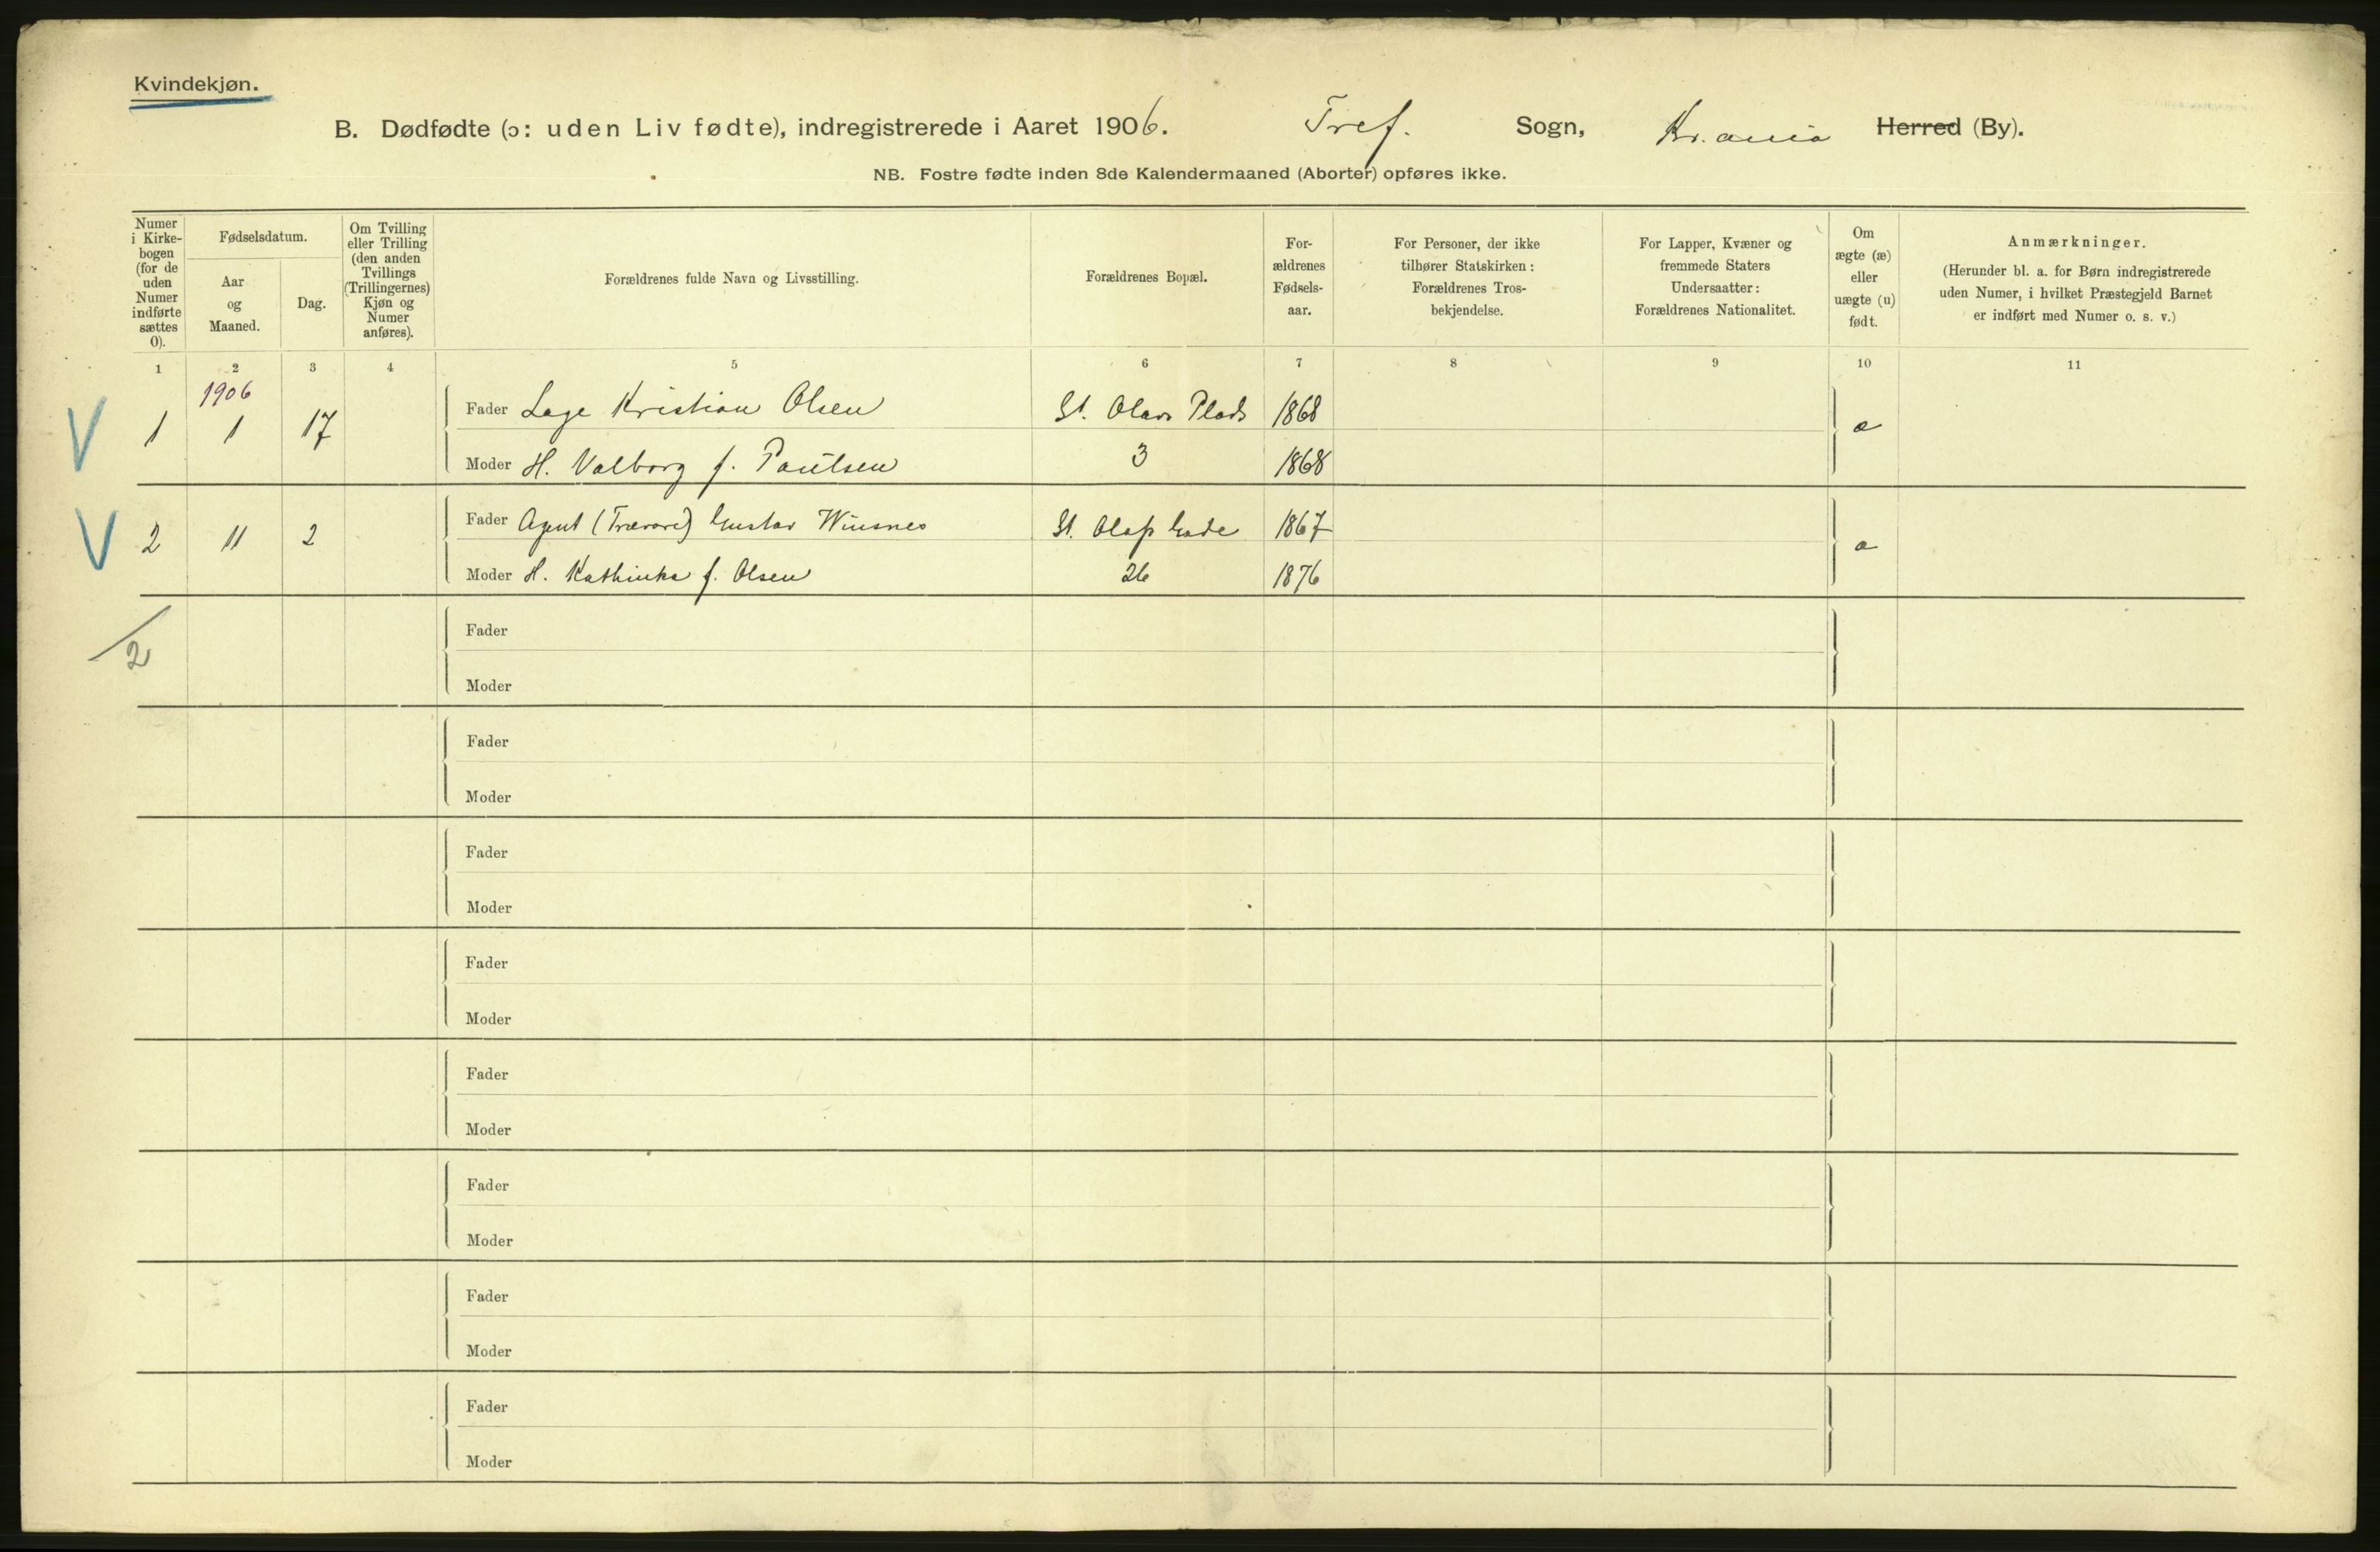 Kvindekjøn.
B. Dødfødte (ɔ: uden Liv fødte), indregistrerede i Aaret 1906. Tref. Sogn, Kr.ania Herred (By).
NB. Fostre fødte inden 8de Kalendermaaned (Aborter) opføres ikke.
Numer i Kirke-bogen (for de uden Numer indførte sættes 0).
Fødselsdatum.
Aar og Maaned.
Dag.
Om Tvilling eller Trilling (den anden Tvillings (Trillingernes) Kjøn og Numer anføres).
Forældrenes fulde Navn og Livsstilling.
Forældrenes Bopæl.
For-ældrenes Fødsels-aar.
For Personer, der ikke tilhører Statskirken: Forældrenes Tros-bekjendelse.
For Lapper, Kvæner og fremmede Staters Undersaatter: Forældrenes Nationalitet.
Om ægte (æ) eller uægte (u) født.
Anmærkninger.
(Herunder bl. a. for Børn indregistrerede uden Numer, i hvilket Præstegjeld Barnet er indført med Numer o. s. v.)
1 2 3 4 5 6 7 8 9 10 11
1906
V 1 1 17 Fader Lage Kristian Olsen St. Olavs Plads 1868 æ
Moder H. Valborg f. Paulsen 3 1868
V 2 11 2 Fader Agent (Trævare) Gustav Winsnes St. Olafs Gade 1867 æ
Moder H. Kathinka f. Olsen 26 1876
2
Fader
Moder
Fader
Moder
Fader
Moder
Fader
Moder
Fader
Moder
Fader
Moder
Fader
Moder
Fader
Moder